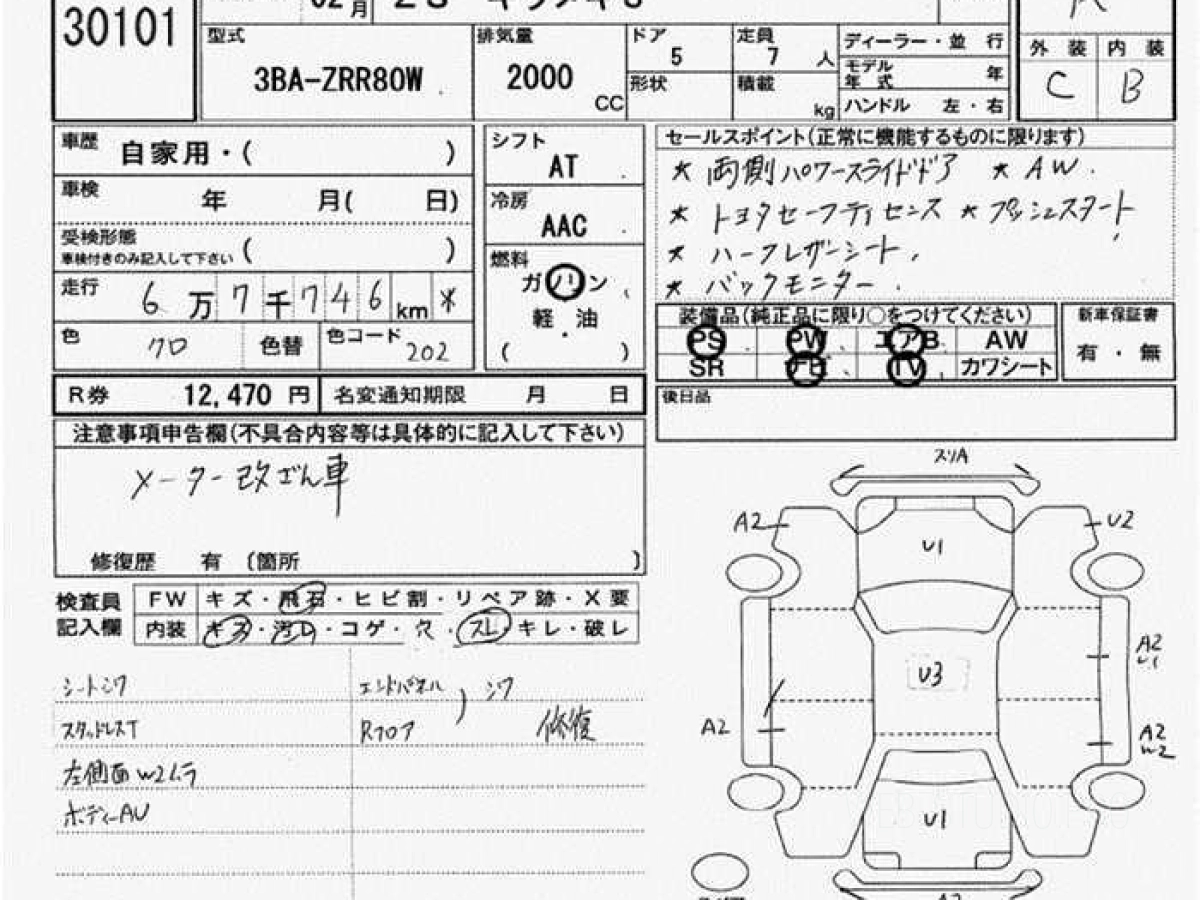 30101
02月
ZS キラメキ3
型式
3BA-ZRR80W
排気量
2000
CC
ドア
5
形状
定員
7 人
積載
kg
ディーラー・並 行
モデル
年 式 年
ハンドル 左・右
外 装 内 装
C B
車歴 自家用・( )
車検 年 月( 日)
受検形態
車検付きのみ記入して下さい ( )
走行 6万7千746km *
色 クロ 色替 色コード 202
シフト
AT
冷房
AAC
燃料
ガソリン
軽・油
( )
セールスポイント(正常に機能するものに限ります)
* 両側パワースライドドア * AW
* トヨタセーフティセンス * プッシュスタート
* ハーフレザーシート
* バックモニター
装備品(純正品に限り○をつけてください)
PS PW エアB AW
SR ナビ TV カワシート
新車保証書
有・無
後日品
R券 12,470 円 名変通知期限 月 日
注意事項申告欄(不具合内容等は具体的に記入して下さい)
メーター改ざん車
修復歴 有 〔箇所 〕
検査員
記入欄
FW キズ・飛石・ヒビ割・リペア跡・X要
内装 キズ・汚レ・コゲ・穴・スレ・キレ・破レ
シートシワ
スタッドレスT
左側面W2ムラ
ボディーAU
エンドパネル ) ジワ
Rフロア 修復
スリA
A2 U2
U1
U3
A2
U1
A2
A2
W2
U1